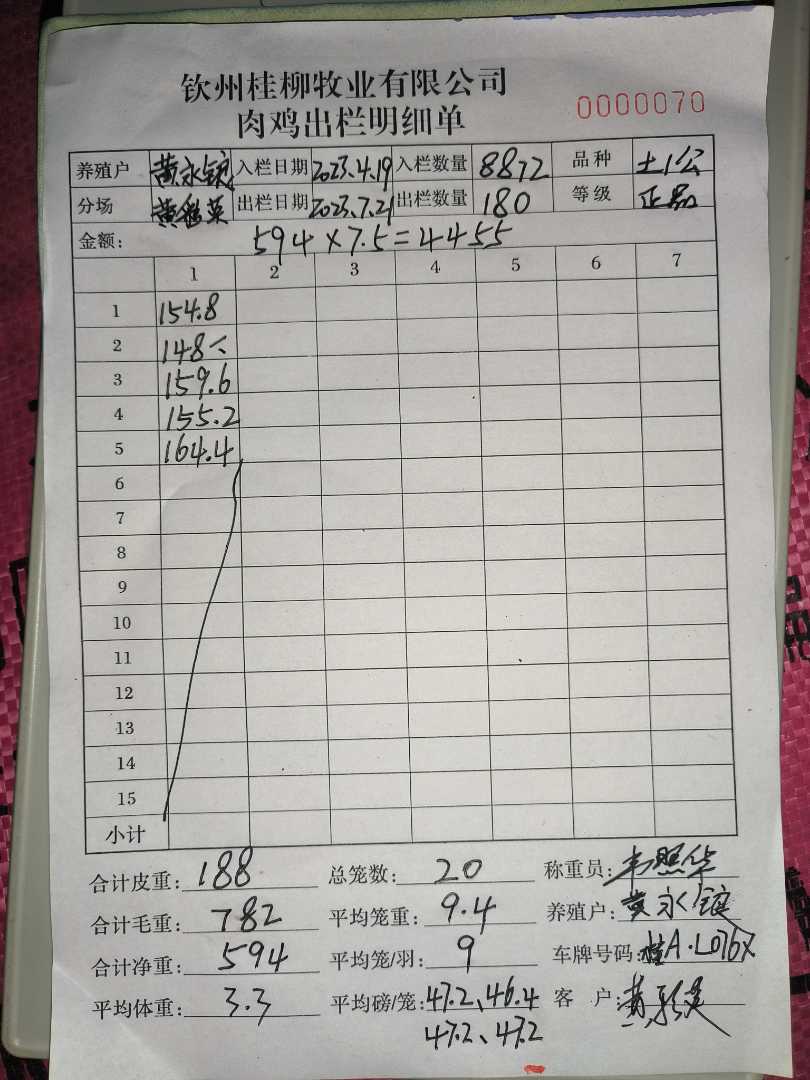 钦州桂柳牧业有限公司
0000070
肉鸡出栏明细单
养殖户 黄永锭 入栏日期 2023.4.19 入栏数量 8872 品种 土1公
分场 出栏日期 2023.7.21 出栏数量 180 等级 正品
金额: 594×7.5=4455
1 2 3 4 5 6 7
1 154.8
2 148
3 159.6
4 155.2
5 164.4
6
7
8
9
10
11
12
13
14
15
小计
合计皮重: 188 总笼数: 20 称重员: 韦照华
合计毛重: 782 平均笼重: 9.4 养殖户: 黄永锭
合计净重: 594 平均笼/羽: 9 车牌号码: 桂A·L076X
平均体重: 3.3 平均磅/笼: 47.2、46.4 客 户:
47.2、47.2